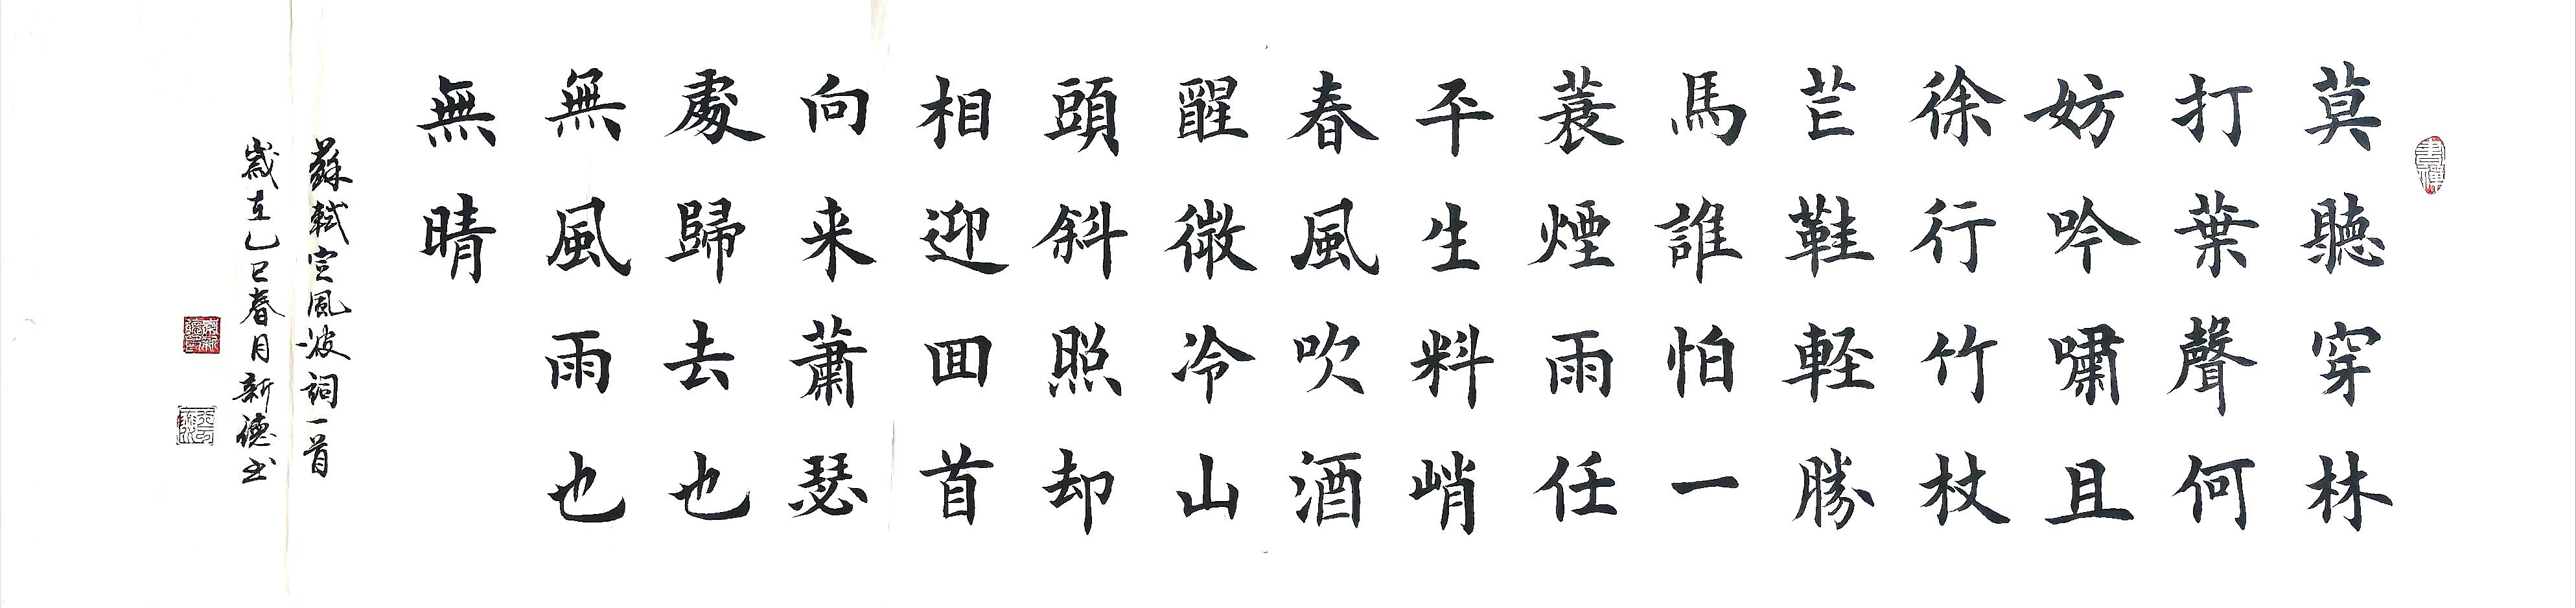 莫聽穿林
打葉聲何
妨吟嘯且
徐行竹杖
芒鞋軽勝
馬誰怕一
蓑煙雨任
平生料峭
春風吹酒
醒微冷山
頭斜照却
相迎囬首
向来蕭瑟
處歸去也
無風雨也
無晴
蘇軾定風波詞一首
歲在乙巳春月新德书